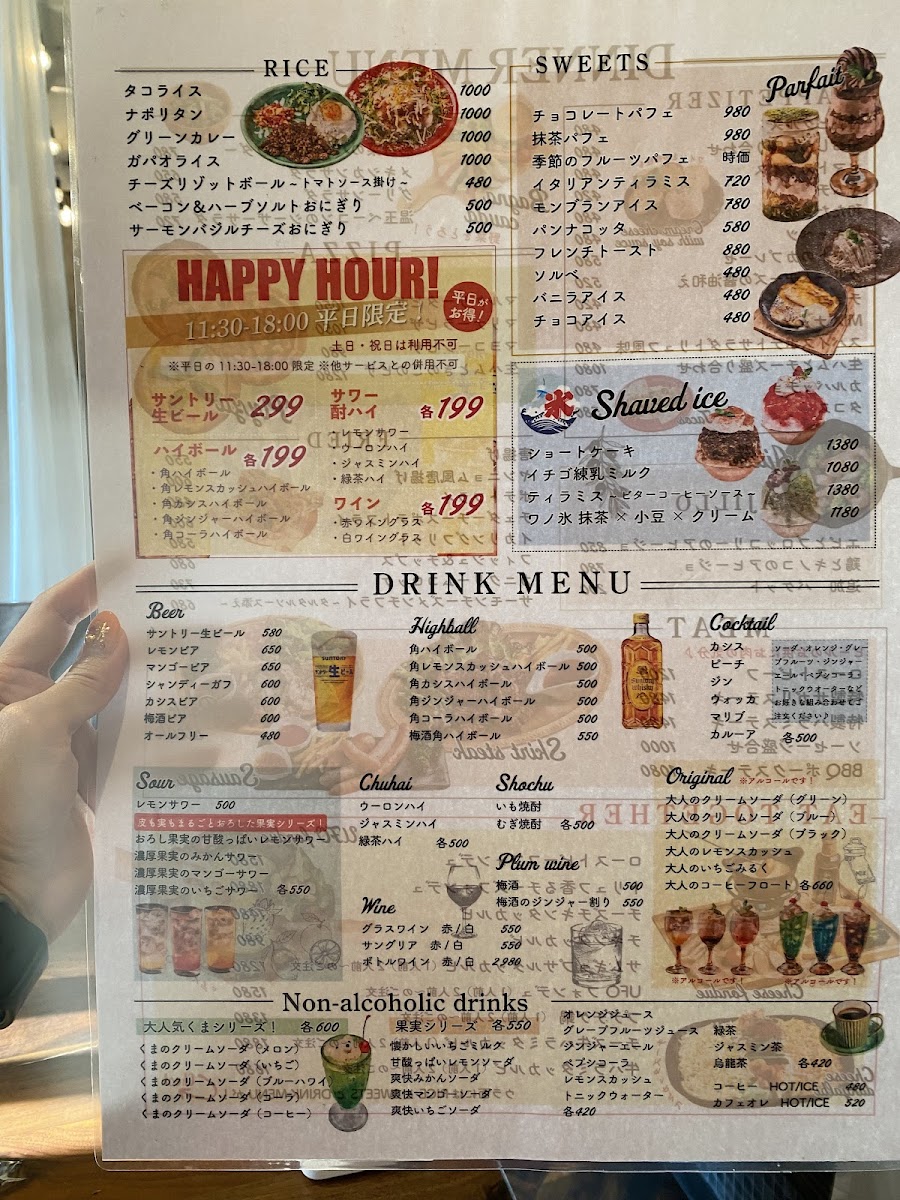 RICE
タコライス 1000
ナポリタン 1000
グリーンカレー 1000
ガパオライス 1000
チーズリゾットボール～トマトソース掛け～ 480
ベーコン&ハーブソルトおにぎり 500
サーモンバジルチーズおにぎり 500
SWEETS
Parfait
チョコレートパフェ 980
抹茶パフェ 980
季節のフルーツパフェ 時価
イタリアンティラミス 720
モンブランアイス 780
パンナコッタ 580
フレンチトースト 880
ソルベ 480
バニラアイス 480
チョコアイス 480
HAPPY HOUR!
11:30-18:00 平日限定!
平日が
お得!
土日・祝日は利用不可
※平日の11:30-18:00限定 ※他サービスとの併用不可
サントリー
生ビール 299
ハイボール 各199
・角ハイボール
・角レモンスカッシュハイボール
・角カシスハイボール
・角ジンジャーハイボール
・角コーラハイボール
サワー
酎ハイ 各199
・レモンサワー
・ウーロンハイ
・ジャスミンハイ
・緑茶ハイ
ワイン 各199
・赤ワイングラス
・白ワイングラス
氷 Shaved ice
ショートケーキ 1380
イチゴ練乳ミルク 1080
ティラミス～ビターコーヒーソース～ 1380
ワノ氷 抹茶×小豆×クリーム 1180
DRINK MENU
Beer
サントリー生ビール 580
レモンビア 650
マンゴービア 650
シャンディーガフ 600
カシスビア 600
梅酒ビア 600
オールフリー 480
Highball
角ハイボール 500
角レモンスカッシュハイボール 500
角カシスハイボール 500
角ジンジャーハイボール 500
角コーラハイボール 500
梅酒角ハイボール 550
Cocktail
カシス
ピーチ
ジン
ウォッカ
マリブ
カルーア 各500
ソーダ・オレンジ・グレー
プフルーツ・ジンジャー
エール・ペプシコーラ・
トニックウォーターなど
お好きな組み合わせでご
注文ください♪
Sour
レモンサワー 500
皮も実もまるごとおろした果実シリーズ!
おろし果実の甘酸っぱいレモンサワー
濃厚果実のみかんサワー
濃厚果実のマンゴーサワー
濃厚果実のいちごサワー 各550
Chuhai
ウーロンハイ
ジャスミンハイ
緑茶ハイ 各500
Shochu
いも焼酎
むぎ焼酎 各500
Plum wine
梅酒 500
梅酒のジンジャー割り 550
Wine
グラスワイン 赤/白 550
サングリア 赤/白 550
ボトルワイン 赤/白 2,980
Original ※アルコールです!
大人のクリームソーダ(グリーン)
大人のクリームソーダ(ブルー)
大人のクリームソーダ(ブラック)
大人のレモンスカッシュ
大人のいちごみるく
大人のコーヒーフロート 各660
※アルコールです!
※アルコールです!
Non-alcoholic drinks
大人気くまシリーズ! 各600
くまのクリームソーダ(メロン)
くまのクリームソーダ(いちご)
くまのクリームソーダ(ブルーハワイ)
くまのクリームソーダ(コーラ)
くまのクリームソーダ(コーヒー)
果実シリーズ 各550
懐かしいいちごミルク
甘酸っぱいレモンソーダ
爽快みかんソーダ
爽快マンゴーソーダ
爽快いちごソーダ
オレンジジュース
グレープフルーツジュース
ジンジャーエール
ペプシコーラ
レモンスカッシュ
トニックウォーター
各420
緑茶
ジャスミン茶
烏龍茶 各420
コーヒー HOT/ICE 480
カフェオレ HOT/ICE 520